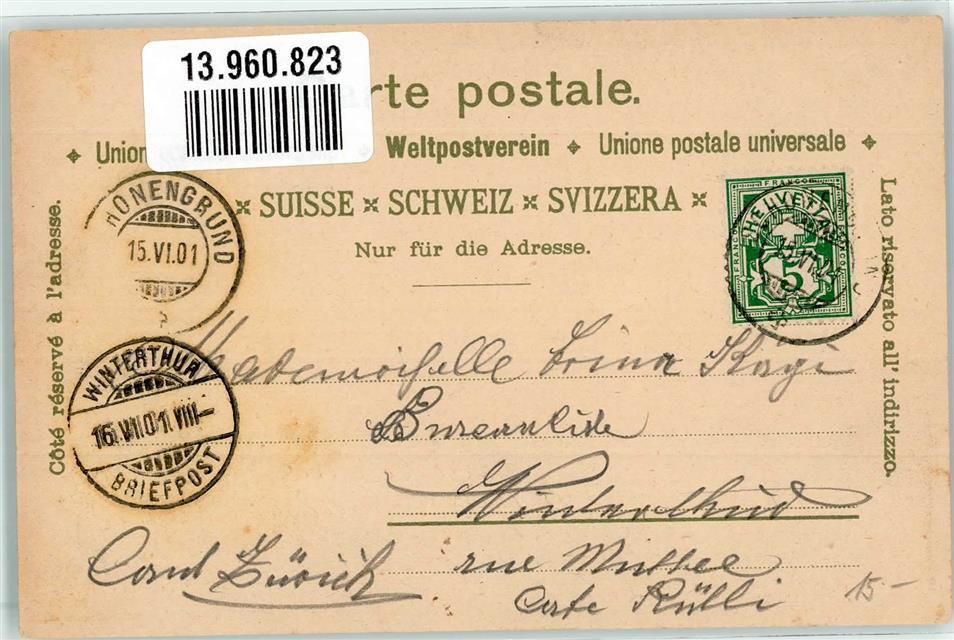 13.960.823
rte postale.
Union Weltpostverein Unione postale universale
SUISSE SCHWEIZ SVIZZERA
Nur für die Adresse.
Côté réservé à l'adresse.
Lato riservato all' indirizzo.
RONENGRUND
15.VI.01
WINTERTHUR
16.VII.01.VIII—
BRIEFPOST
FRANCO
HELVETIA
5
Mademoiselle
Winterthur
Cant Zürich
rue
Carte
15-